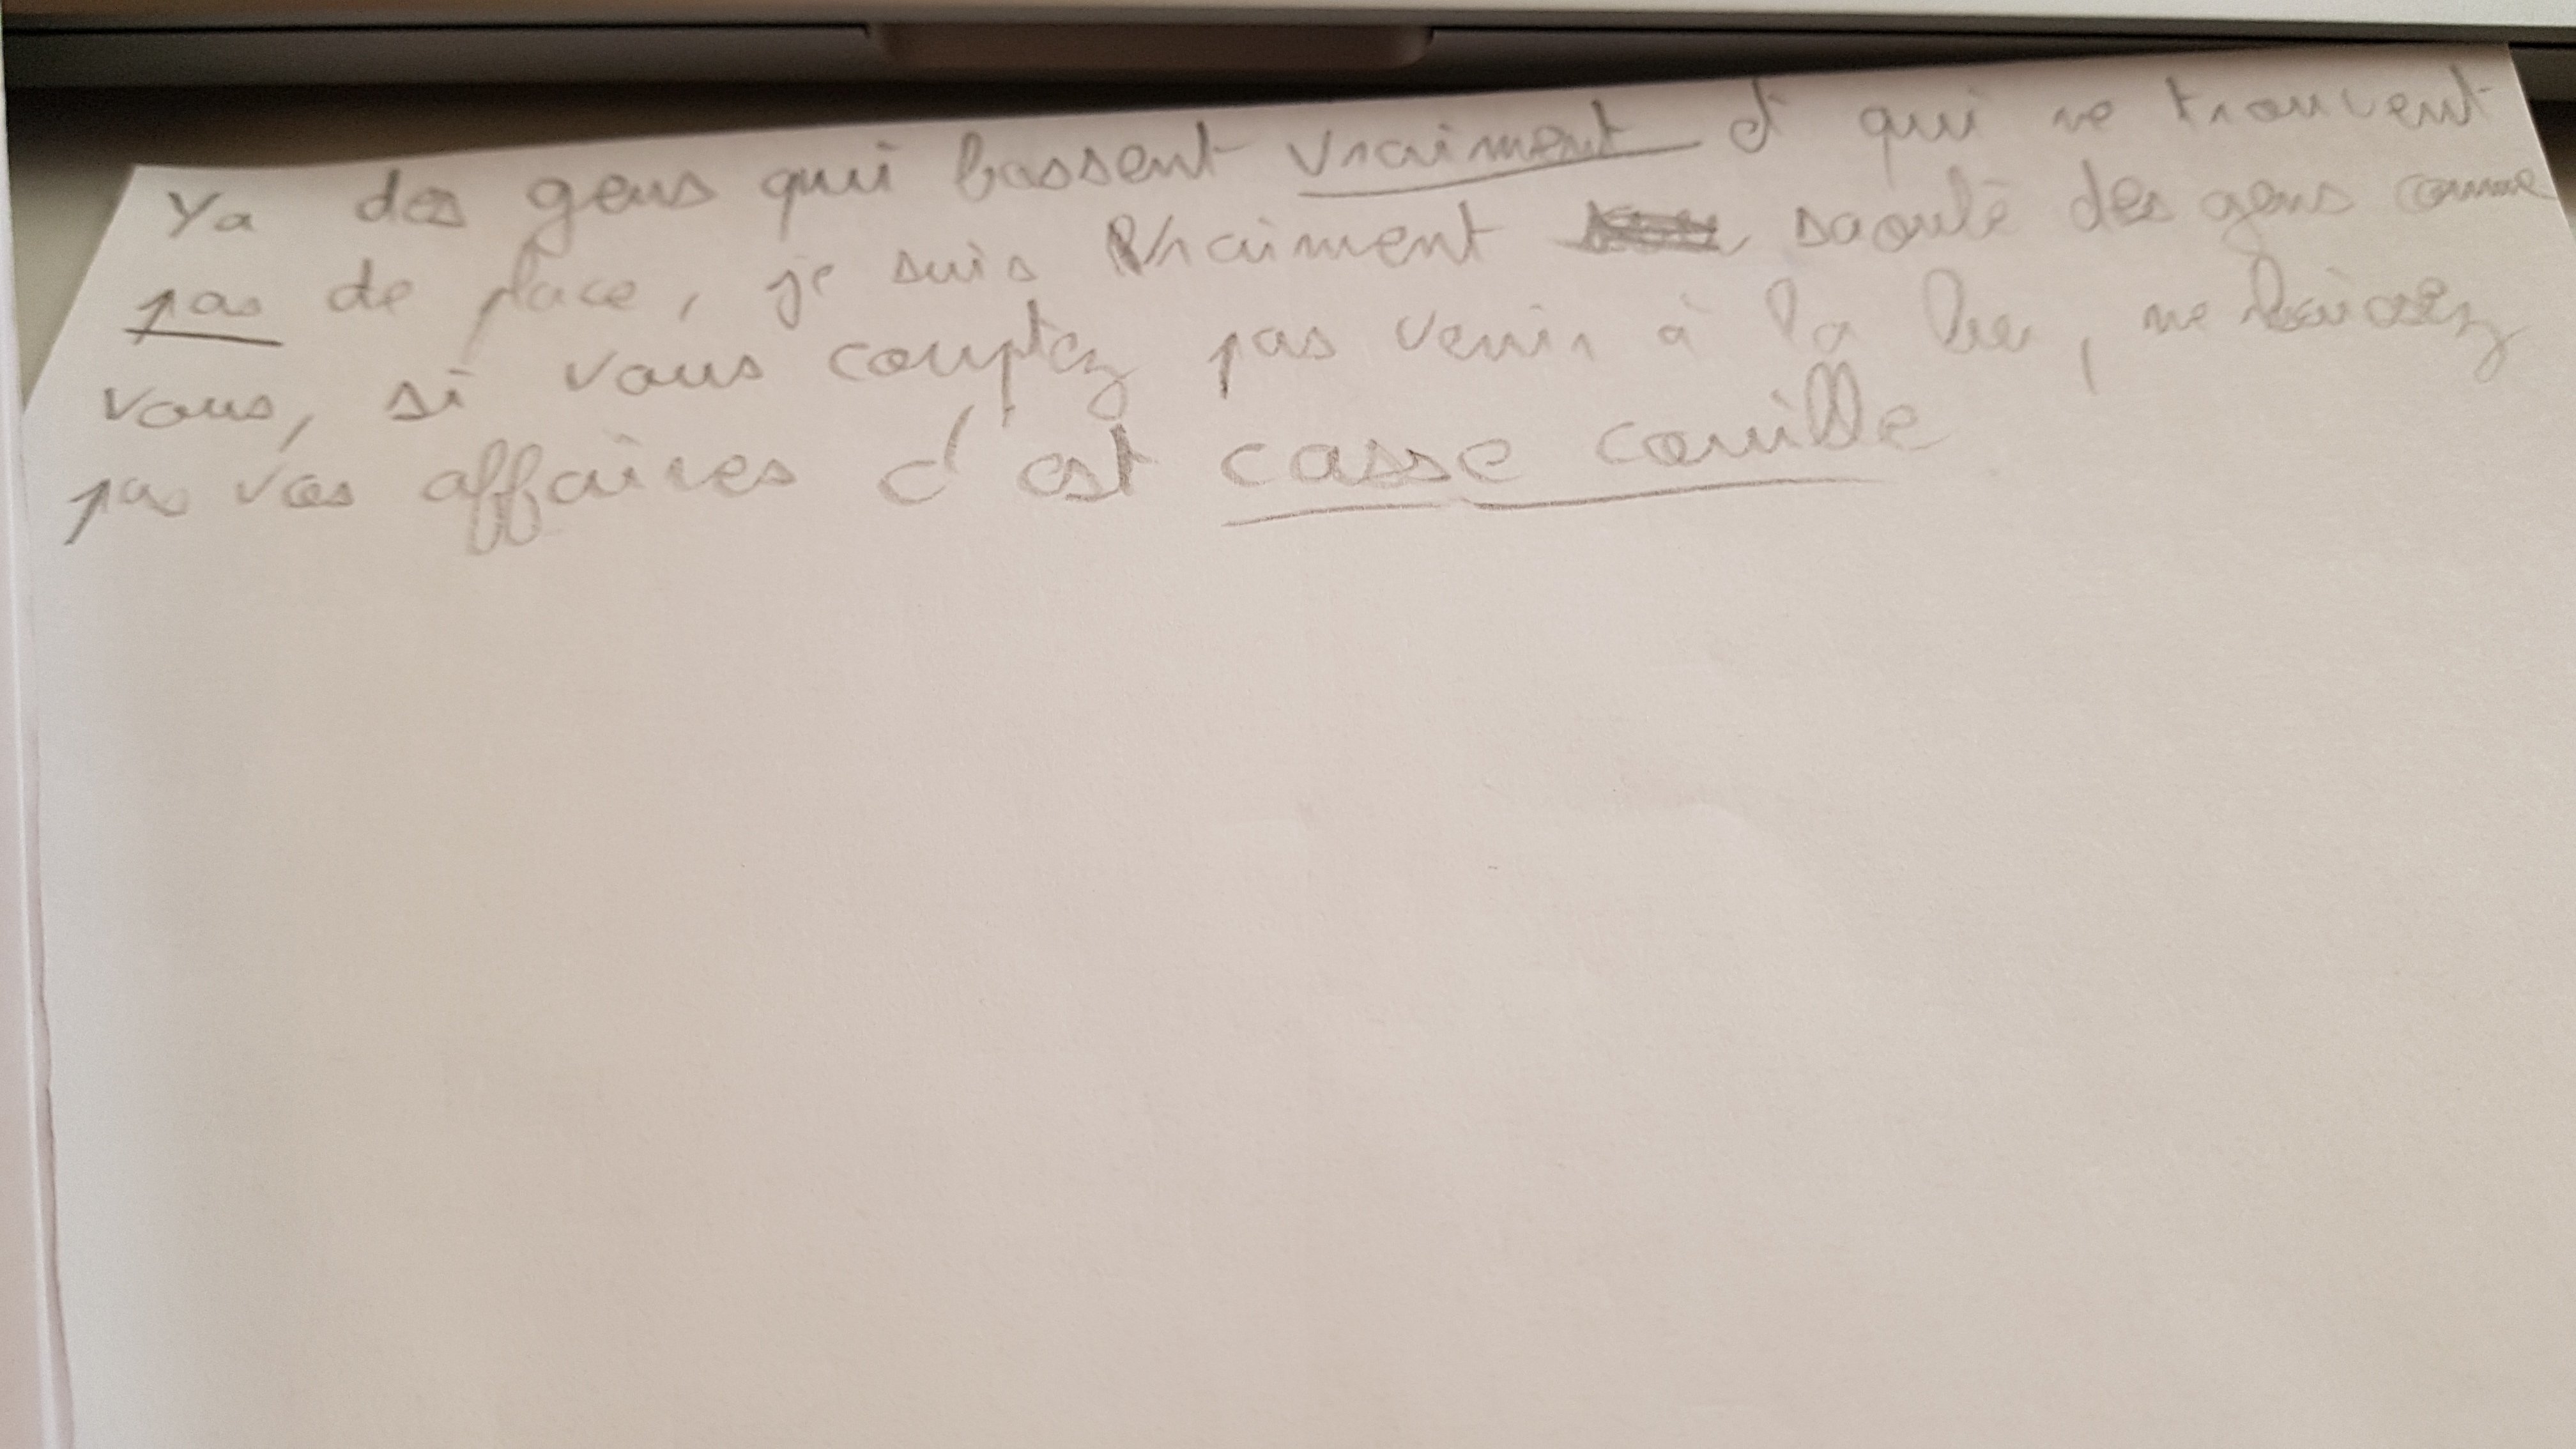 Ya des gens qui bossent vraiment et qui ne trouvent
pas de place, je suis vraiment saoulé des gens comme
vous, si vous comptez pas venir à la bu, ne laissez
pas vos affaires c'est casse couille